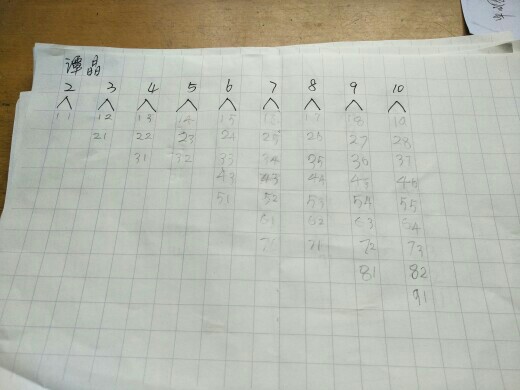 谭晶
2 3 4 5 6 7 8 9 10
11 12 13 14 15 16 17 18 19
21 22 23 24 25 26 27 28
31 32 33 34 35 36 37
43 43 44 45 46
51 52 53 54 55
61 62 63 64
71 72 73
81 82
91